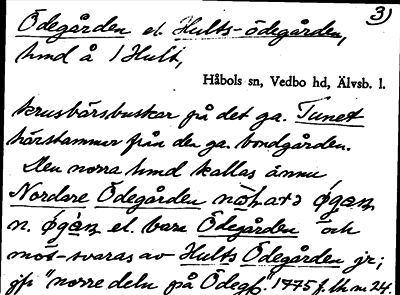 3)
Ödegården el. Hults-ödegården,
hmd å 1 Hult,
Håbols sn, Vedbo hd, Älvsb. l.
krusbärsbuskar på det ga. Tunet
härstammer från den ga. bondgården.
Den norra hmd kallas ännu
Nordare Ödegården
n. el. bara Ödegården och
mot-svaras av Hults Ödegården jr;
jfr "norre deln på Ödeg." 1775 f. lh nr 24.